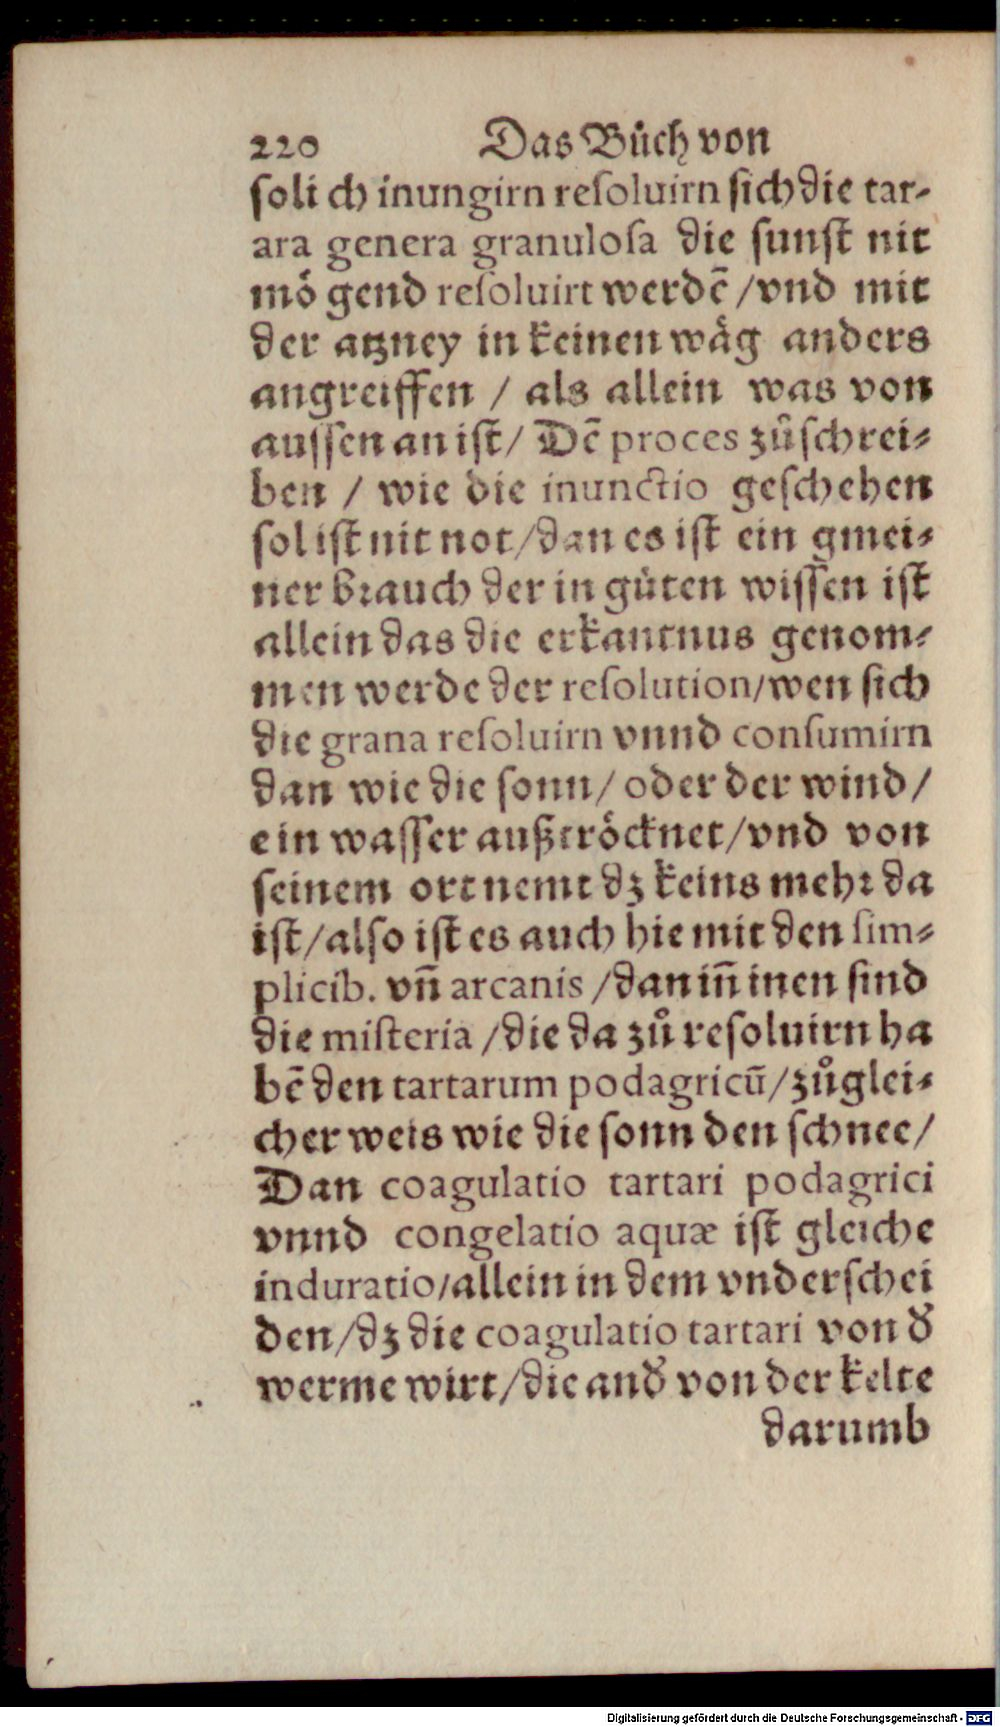 220 Das Bůch von
solich inungirn resoluirn sich die tar-
ara genera granulosa die sunst nit
mögend resoluirt werdē /vnd mit
der atzney in keinen wåg anders
angreiffen / als allein was von
aussen an ist/ Dē proces zů schrei-
ben / wie die inunctio geschehen
sol ist nit not/dan es ist ein gmei-
ner brauch der in gůten wissen ist
allein das die erkantnus genom-
men werde der resolution/wen sich
die grana resoluirn vnnd consumirn
dan wie die sonn/ oder der wind/
ein wasser außtröcknet/vnd von
seinem ort nemt dz keins mehr da
ist/also ist es auch hie mit den sim-
plicib. vn̄ arcanis /dan in̄ inen sind
die misteria /die da zů resoluirn ha
bē den tartarum podagricū/zůglei-
cher weis wie die sonn den schnee/
Dan coagulatio tartari podagrici
vnnd congelatio aquæ ist gleiche
induratio/allein in dem vnderschei
den/dz die coagulatio tartari von d̕
werme wirt/die and̕ von der kelte
darumb
Digitalisierung gefördert durch die Deutsche Forschungsgemeinschaft - DFG